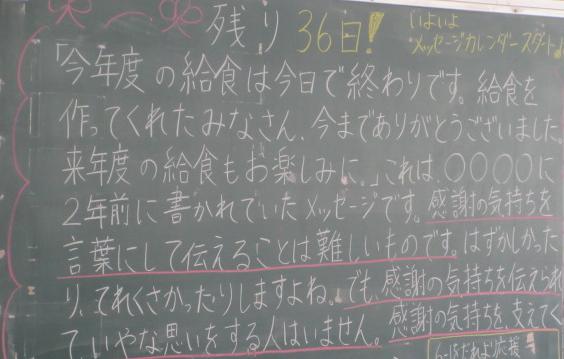 残り 36日!
いよいよ
メッセージカレンダースタート
「今年度の給食は今日で終わりです。給食を
作ってくれたみなさん、今までありがとうございました。
来年度の給食もお楽しみに。」これは、〇〇〇〇に
2年前に書かれていたメッセージです。感謝の気持ちを
言葉にして伝えることは難しいものです。はずかしかった
り、てれくさかったりしますよね。でも、感謝の気持ちを伝えられ
て、いやな思いをする人はいません。感謝の気持ちを、支えてく